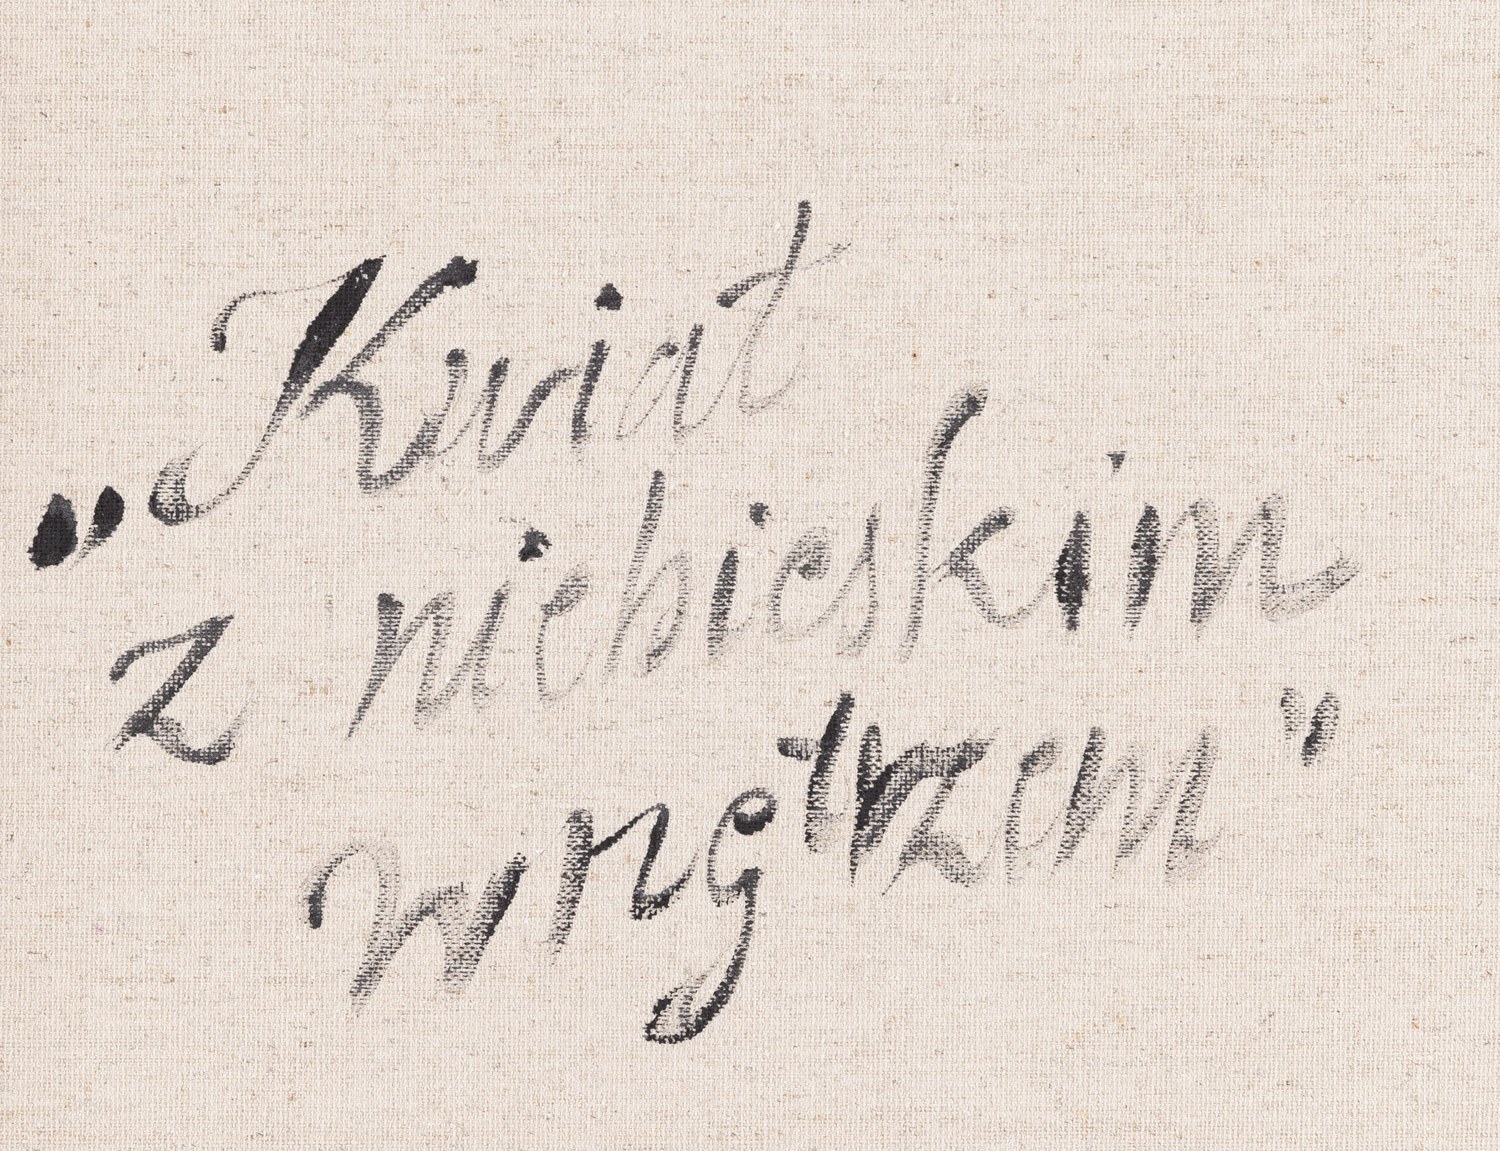 „Kwiat
z niebieskim
wnętrzem"